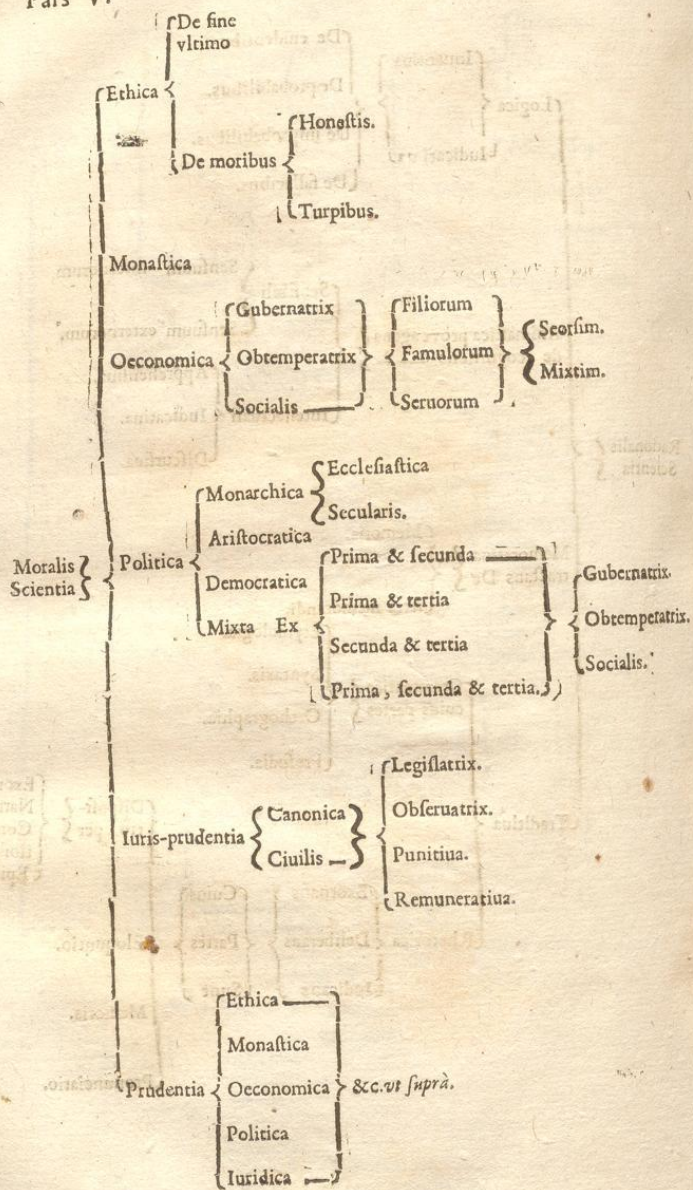 Pars V.
De fine
vltimo
Ethica
De moribus
Honestis.
Turpibus.
Monaſtica
Oeconomica
Gubernatrix
Obtemperatrix
Socialis
Filiorum
Famulorum
Seruorum
Seorſim.
Mixtim.
Moralis
Scientia
Politica
Monarchica
Eccleſiaſtica
Secularis.
Ariſtocratica
Democratica
Mixta Ex
Prima & ſecunda
Prima & tertia
Secunda & tertia
Prima, ſecunda & tertia.
Gubernatrix.
Obtemperatrix.
Socialis.
Iuris-prudentia
Canonica
Ciuilis
Legiſlatrix.
Obſeruatrix.
Punitiua.
Remuneratiua.
Prudentia
Ethica
Monaſtica
Oeconomica
Politica
Iuridica
&c. vt ſuprà.